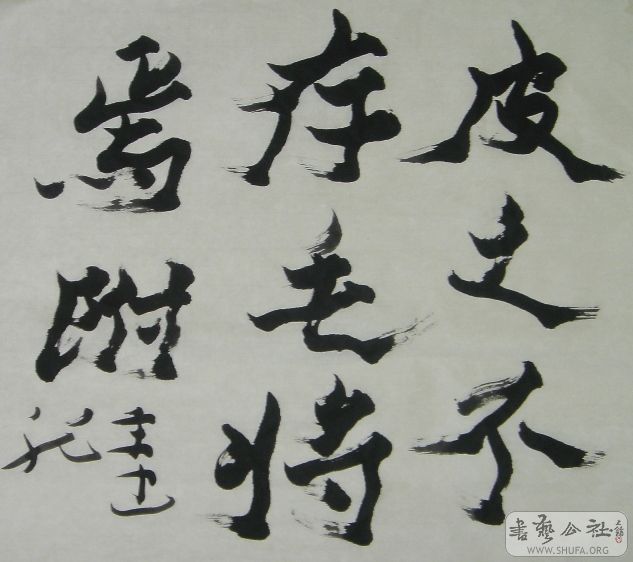 皮之不
存毛将
焉附
書藝公社
WWW.SHUFA.ORG